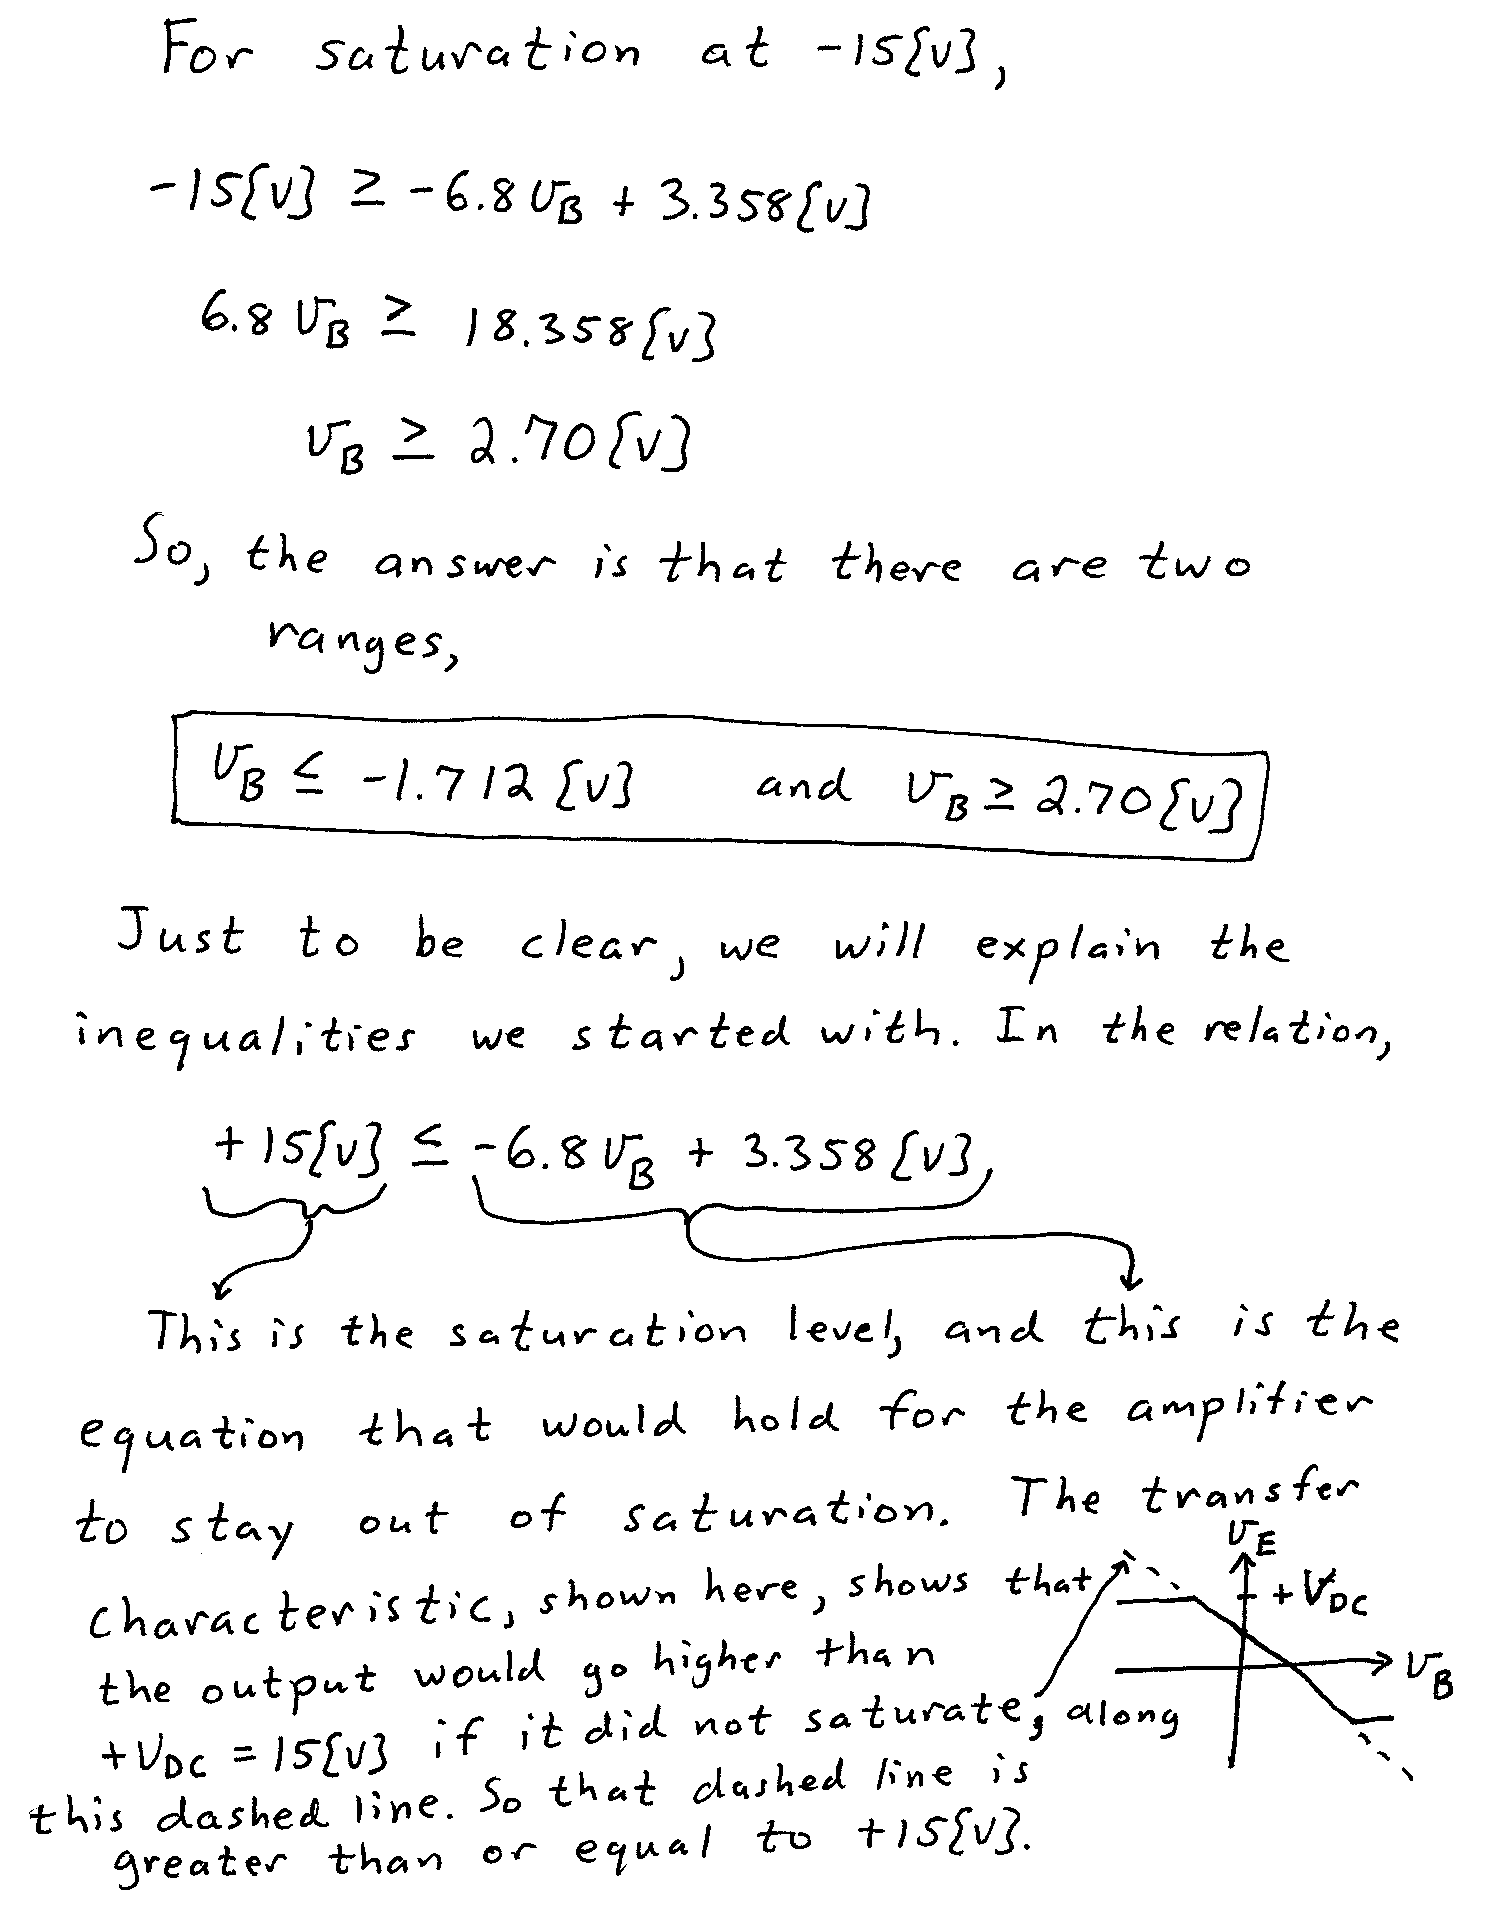 For saturation at -15[V],
-15[V] ≥ -6.8 vB + 3.358[V]
6.8 vB ≥ 18.358[V]
vB ≥ 2.70[V]
So, the answer is that there are two
ranges,
vB ≤ -1.712 [V] and vB ≥ 2.70[V]
Just to be clear, we will explain the
inequalities we started with. In the relation,
+15[V] ≤ -6.8 vB + 3.358 [V],
This is the saturation level, and this is the
equation that would hold for the amplifier
to stay out of saturation. The transfer
characteristic, shown here, shows that
the output would go higher than
+VDC = 15[V] if it did not saturate, along
this dashed line. So that dashed line is
greater than or equal to +15[V].
vE
+VDC
vB